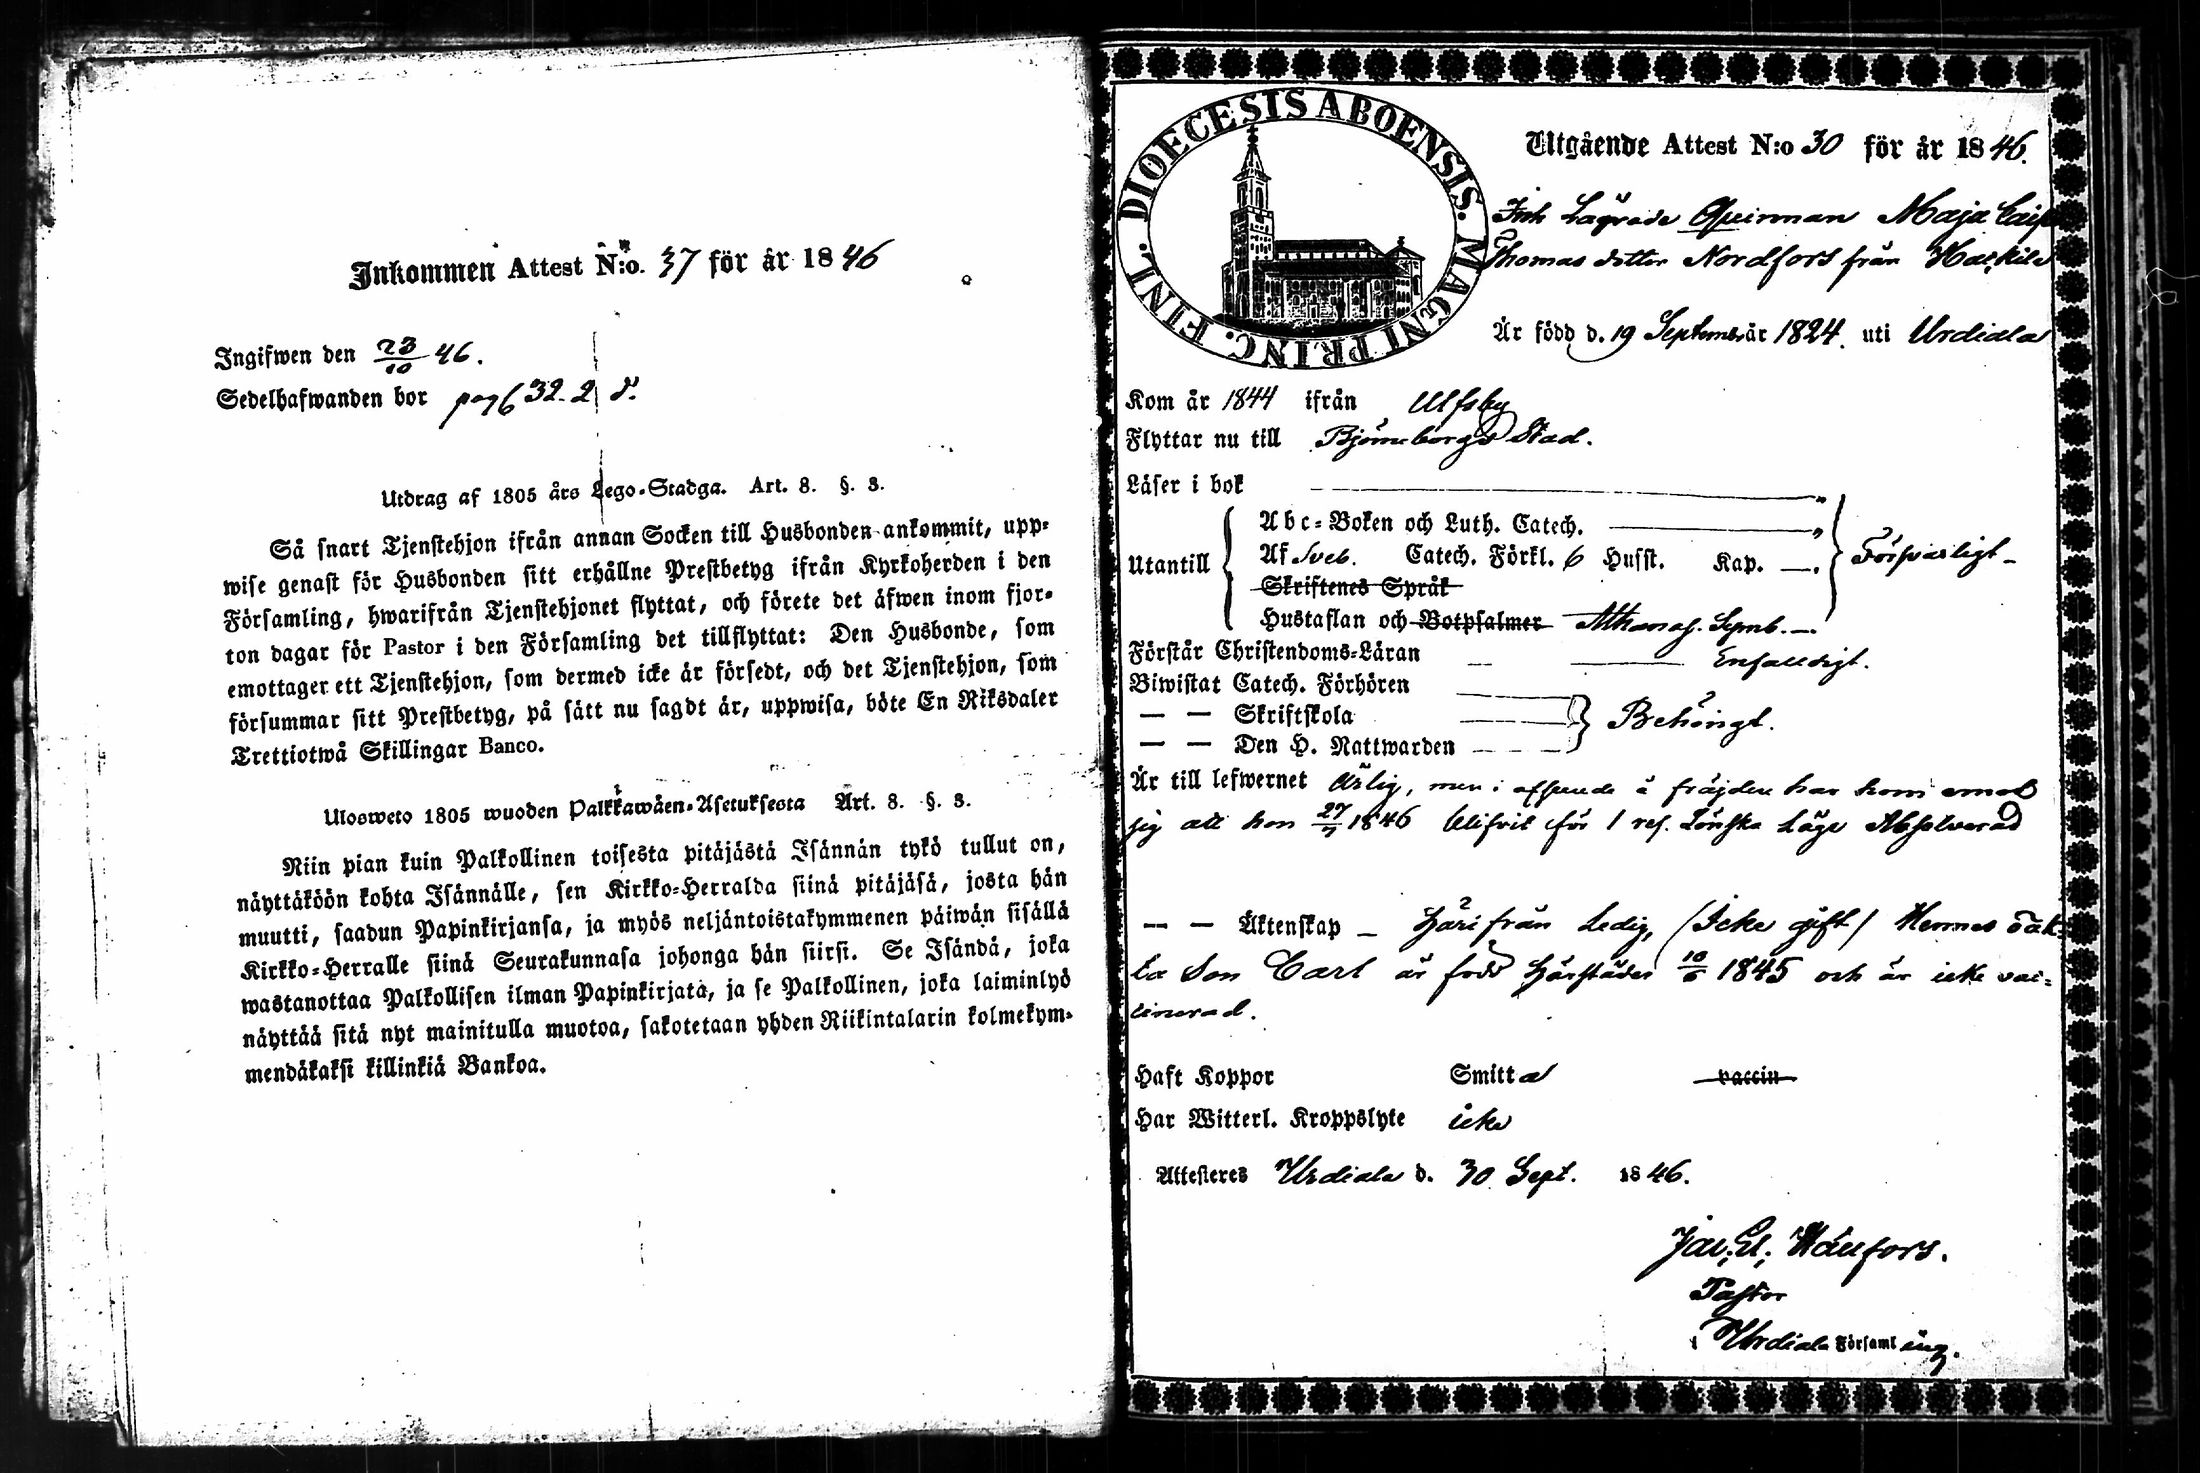 Inkommen Attest N:o. 37 för år 1846
Ingifwen den 23/10 46.
Sedelhafwanden bor pag 632. 2
Utdrag af 1805 års Lego-Stadga. Art. 8. §. 3.
Så snart Tjenstehjon ifrån annan Socken till Husbonden ankommit, upp-
wise genast för Husbonden sitt erhållne Prestbetyg ifrån Kyrkoherden i den
Församling, hwarifrån Tjenstehjonet flyttat, och förete det äfwen inom fjor-
ton dagar för Pastor i den Församling det tillflyttat: Den Husbonde, som
emottager ett Tjenstehjon, som dermed icke är försedt, och det Tjenstehjon, som
försummar sitt Prestbetyg, på sätt nu sagdt är, uppwisa, böte En Riksdaler
Trettiotwå Skillingar Banco.
Ulosweto 1805 wuoden Palkkawäen-Asetuksesta Art. 8. §. 3.
Niin pian kuin Palkollinen toisesta pitäjästä Isännän tykö tullut on,
näyttäköön kohta Isännälle, sen Kirkko-Herralda siinä pitäjäsä, josta hän
muutti, saadun Papinkirjansa, ja myös neljäntoistakymmenen päiwän sisällä
Kirkko-Herralle siinä Seurakunnasa johonga hän siirsi. Se Isändä, joka
wastanottaa Palkollisen ilman Papinkirjata, ja se Palkollinen, joka laiminlyö
näyttää sitä nyt mainitulla muotoa, sakotetaan yhden Riikintalarin kolmekym-
mendäkaksi killinkiä Bankoa.
DIOECESIS ABOENSIS. MAGNI PRINC. FINL.
Utgående Attest N:o 30 för år 1846.
Inh Lägrade Qvinnan Maja Caisa
Thomas dotter Nordfors från
Är född d. 19 September år 1824. uti Urdiala
Kom år 1844 ifrån Ulfsby
Flyttar nu till Björneborgs Stad.
Läser i bok
Utantill
Abc-Boken och Luth. Catech.
Af Sveb. Catech. Förkl. 6 Husst. Kap. —.
Försvarligt
Skriftenes Språk
Hustaflan och Botpsalmer Athanas. Symb. —.
Förstår Christendoms-Läran — Enfalldigt.
Biwistat Catech. Förhören
— — Skriftskola
Behörigt.
— — Den H. Nattwarden
Är till lefwernet ärlig, men i afseende å fräjden har hon
sig att hon 27/ 1846 blifvit för 1 res. Lönska Läge Absolverad
— — Äktenskap — Härifrån Ledig, (Icke gift) Hennes oäk-
ta Son Carl är född härstädes 10/6 1845 och är icke vac-
cinerad.
Haft Koppor Smitta vaccin
Har Witterl. Kroppslyte icke
Attesteres Urdiala d. 30 Sept. 1846.
Pastor
i Urdiala Församling.